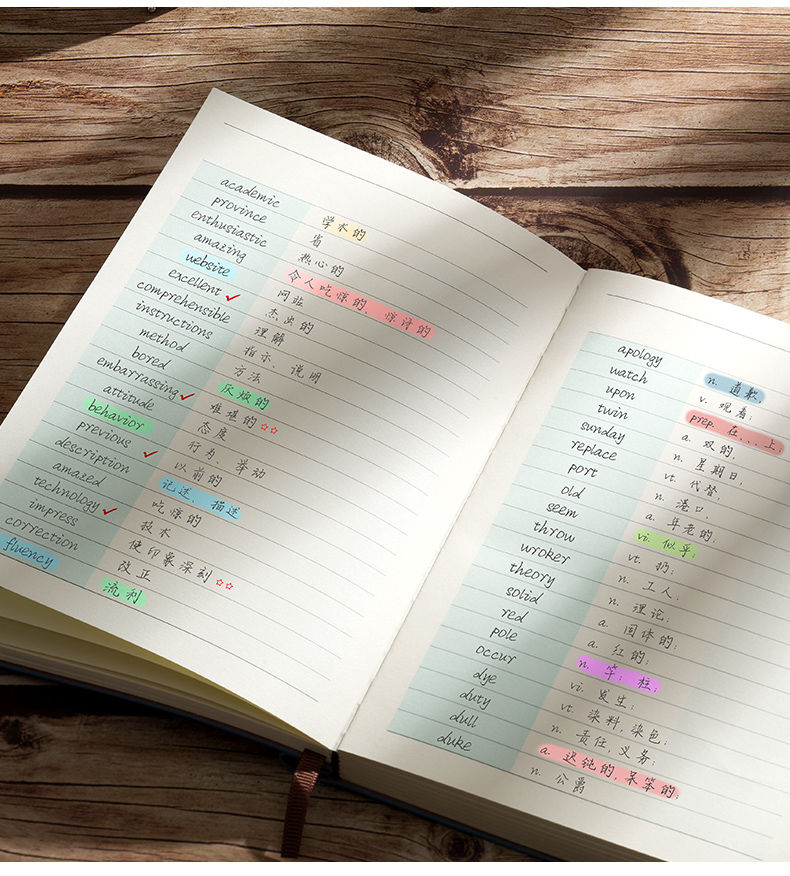 academic 学术的
province 省
enthusiastic 热心的
amazing 令人吃惊的、惊讶的
website 网站
excellent 杰出的
comprehensible 理解
instructions 指示、说明
method 方法
bored 厌烦的
embarrassing 难堪的
attitude 态度
behavior 行为、举动
previous 以前的
description 记述、描述
amazed 吃惊的
technology 技术
impress 使印象深刻
correction 改正
fluency 流利
apology n. 道歉
watch v. 观看;
upon prep. 在、、、上;
twin a. 双的
sunday n. 星期日;
replace vt. 代替;
port n. 港口;
old a. 年老的;
seem vi. 似乎;
throw vt. 扔;
wroker n. 工人;
theory n. 理论;
solid a. 固体的;
red a. 红的;
pole n. 竿; 柱;
occur vi. 发生;
dye vt. 染料,染色;
duty n. 责任,义务;
dull a. 迟钝的,呆笨的;
duke n. 公爵